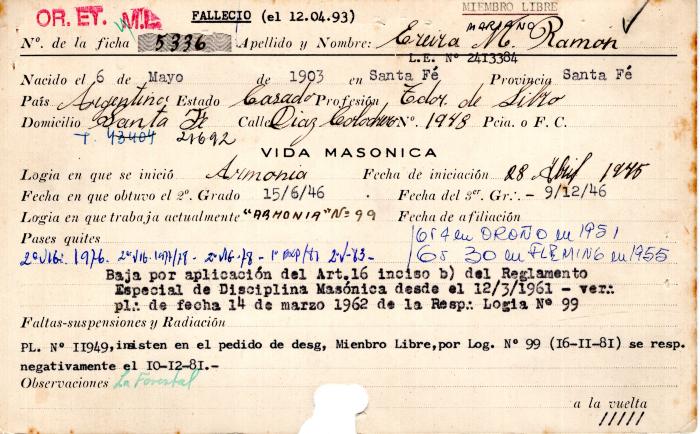 OR. ET. M.L. FALLECIO (el 12.04.93) MIEMBRO LIBRE
MARIANO
Nº. de la ficha 5336 Apellido y Nombre: Ereira M. Ramón
L.E. Nº 2413384
Nacido el 6 de Mayo de 1903 en Santa Fé Provincia Santa Fé
País Argentino Estado Casado Profesión Tdor. de
Domicilio Santa Fe Calle Diaz Nº. 1948 Pcia. o F. C.
T. 43404 21692
VIDA MASONICA
Logia en que se inició Armonia Fecha de iniciación 28 Abril 1945
Fecha en que obtuvo el 2º. Grado 15/6/46 Fecha del 3er. Gr.·. - 9/12/46
Logia en que trabaja actualmente "ARMONIA" Nº 99 Fecha de afiliación
Pases quites 654 en OROÑO en 1951
2º Vig. 1976. 2º Vig. 1977/78 - 2º Vig-78 - 65 30 en FLEMING en 1955
Baja por aplicación del Art.16 inciso b) del Reglamento
Especial de Disciplina Masónica desde el 12/3/1961 - ver.·.
pl.·. de fecha 14 de marzo 1962 de la Resp.·. Logia Nº 99
Faltas-suspensiones y Radiación
PL. Nº II949, insisten en el pedido de desg, Mienbro Libre, por Log. Nº 99 (I6-II-8I) se resp.
negativamente el IO-I2-8I.-
Observaciones La Forestal
a la vuelta
11111